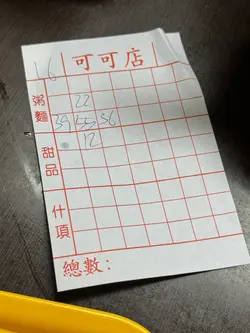 16 可可店
粥麵 22
39 45 56
甜品 12
什項
總數：